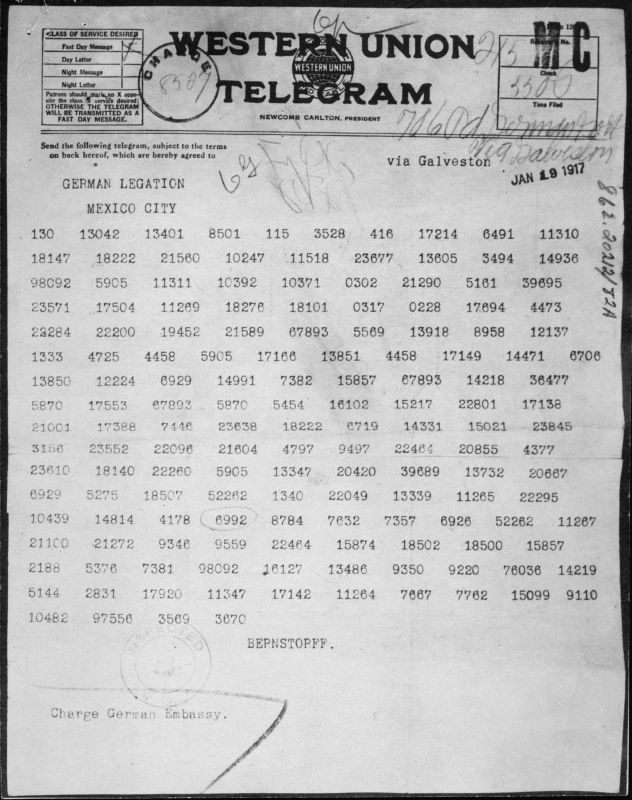 CLASS OF SERVICE DESIRED
Fast Day Message
Day Letter
Night Message
Night Letter
Patrons should mark an X oppo-
site the class of service desired;
OTHERWISE THE TELEGRAM
WILL BE TRANSMITTED AS A
FAST DAY MESSAGE.
CHARGE
WESTERN UNION
WESTERN UNION
TELEGRAM
NEWCOMB CARLTON, PRESIDENT
MC
Check
Time Filed
Send the following telegram, subject to the terms
on back hereof, which are hereby agreed to
via Galveston
JAN 19 1917
GERMAN LEGATION
MEXICO CITY
130 13042 13401 8501 115 3528 416 17214 6491 11310
18147 18222 21560 10247 11518 23677 13605 3494 14936
98092 5905 11311 10392 10371 0302 21290 5161 39695
23571 17504 11269 18276 18101 0317 0228 17694 4473
22284 22200 19452 21589 67893 5569 13918 8958 12137
1333 4725 4458 5905 17166 13851 4458 17149 14471 6706
13850 12224 6929 14991 7382 15857 67893 14218 36477
5870 17553 67893 5870 5454 16102 15217 22801 17138
21001 17388 7446 23638 18222 6719 14331 15021 23845
3156 23552 22096 21604 4797 9497 22464 20855 4377
23610 18140 22260 5905 13347 20420 39689 13732 20667
6929 5275 18507 52262 1340 22049 13339 11265 22295
10439 14814 4178 6992 8784 7632 7357 6926 52262 11267
21100 21272 9346 9559 22464 15874 18502 18500 15857
2188 5376 7381 98092 16127 13486 9350 9220 76036 14219
5144 2831 17920 11347 17142 11264 7667 7762 15099 9110
10482 97556 3569 3670
BERNSTORFF.
INSPECTED
Charge German Embassy.
862.20212/82A